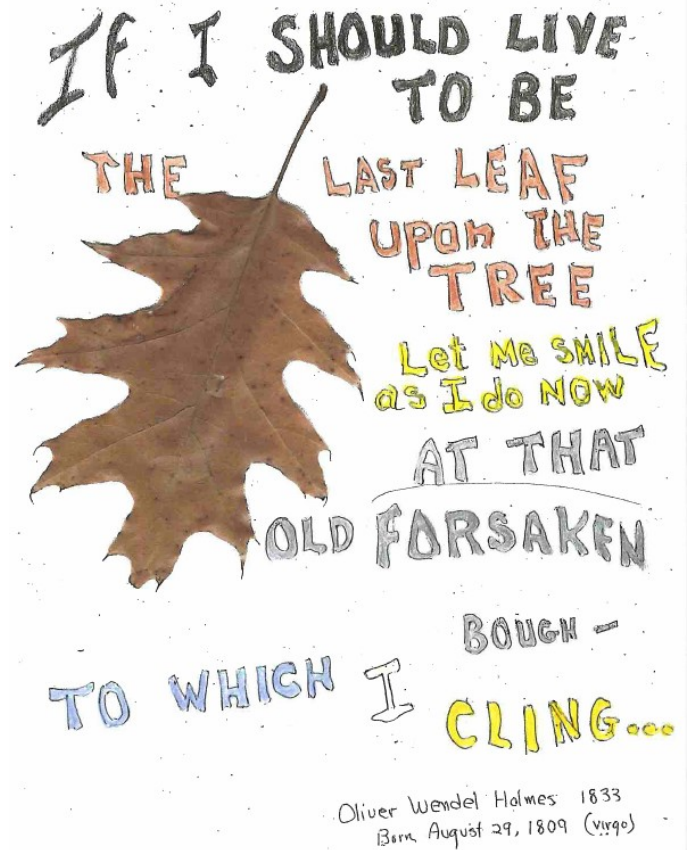 If I SHOULD LIVE
TO BE
THE LAST LEAF
Upon THE
TREE
Let Me SMILE
as I do NOW
AT THAT
OLD FORSAKEN
BOUGH -
TO WHICH I
CLING...
Oliver Wendel Holmes 1833
Born August 29, 1809 (Virgo)